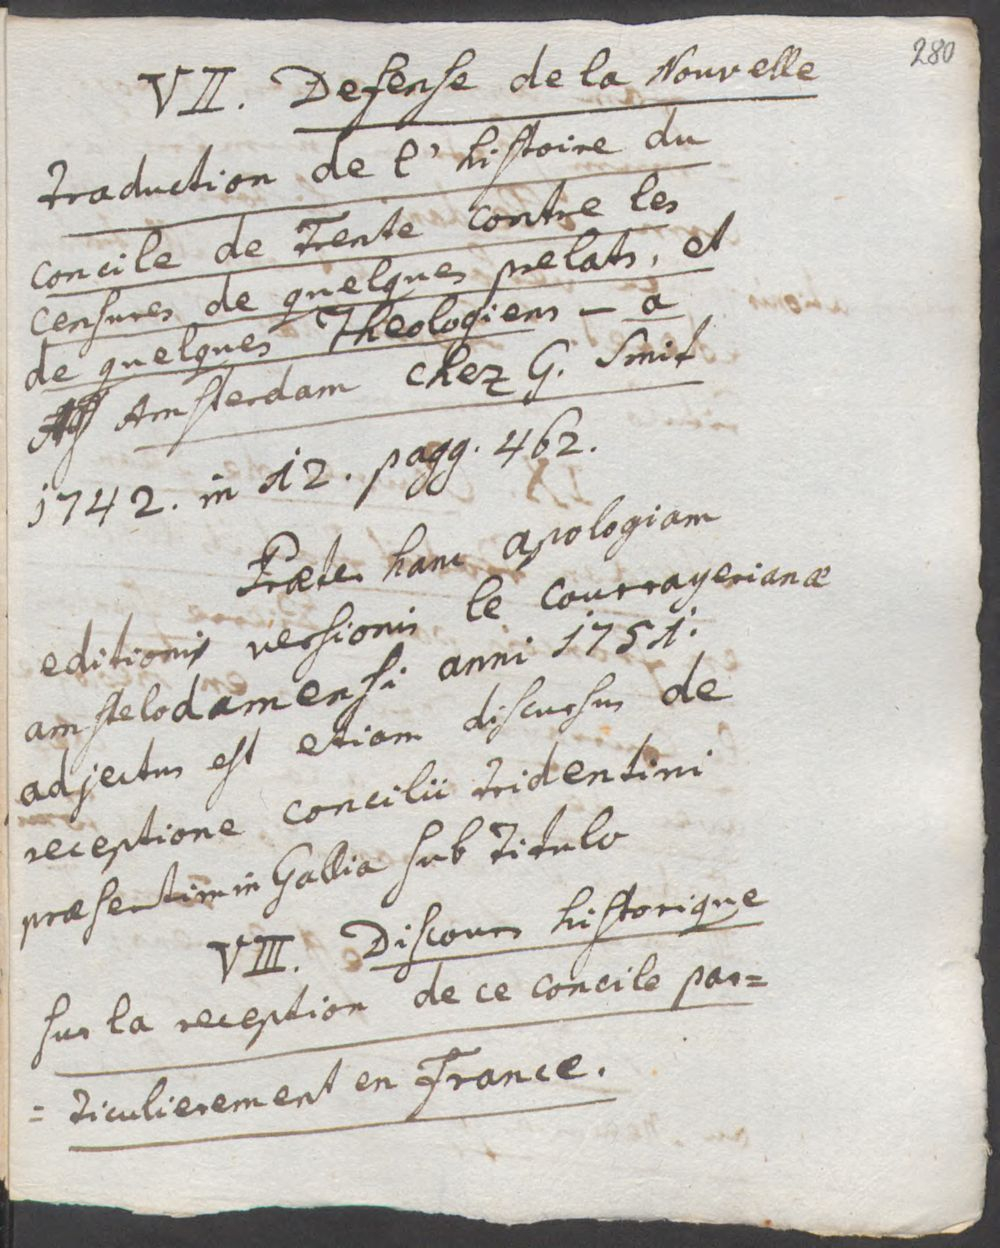 280
VII. Defense de la Nouvelle
traduction de l'histoire du
concile de Trente contre les
censures de quelques prelats, et
de quelques Theologiens – a
Amsterdam chez G. Smit
1742. in 12. pagg. 462.
Præter hanc apologiam
editionis versionis le courrayerianæ
amstelodamensi anni 1751.
adjectus est etiam discursus de
receptione concilii tridentini
præsertim in Gallia sub titulo
VIII. Discours historique
sur la reception de ce concile par=
=ticulierement en France.